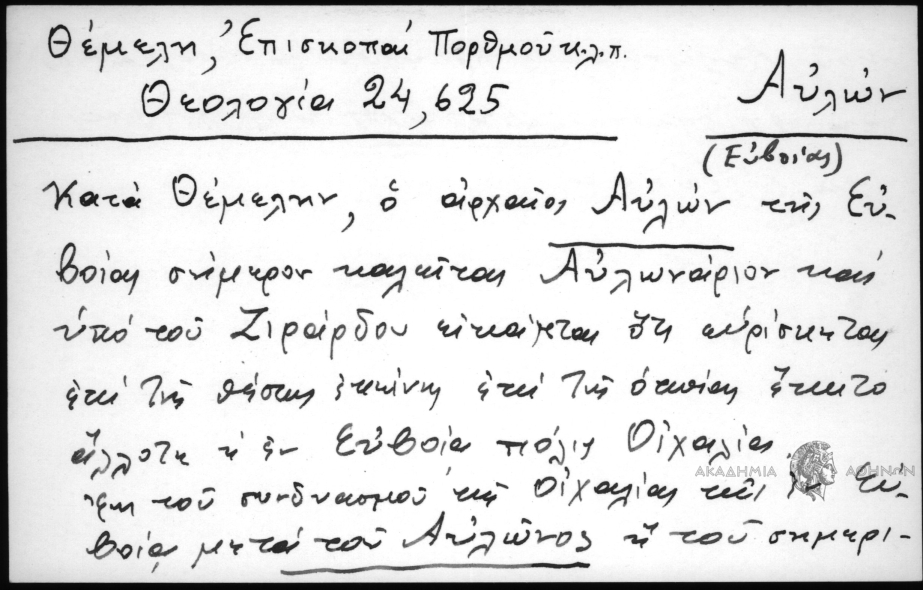 Θέμελη, Ἐπισκοπαί Πορθμοῦ κ.λ.π.
Θεολογία 24, 625
Αὐλών
(Εὐβοίας)
Κατά Θέμελην, ὁ ἀρχαῖος Αὐλών τῆς Εὐ-
βοίας σήμερον καλεῖται Αὐλωνάριον καί
ὑπό τοῦ Ζιράρδου εἰκάζεται ὅτι εὑρίσκεται
ἐπί τῆς θέσεως ἐκείνης ἐπί τῆς ὁποίας ἔκειτο
ἄλλοτε ἡ ἐν Εὐβοίᾳ πόλις Οἰχαλία.
τοῦ συνδυασμοῦ τῆς Οἰχαλίας τῆς ἐν Εὐ-
βοίᾳ μετά τοῦ Αὐλῶνος ἤ τοῦ σημερι-
ΑΚΑΔΗΜΙΑ ΑΘΗΝΩΝ